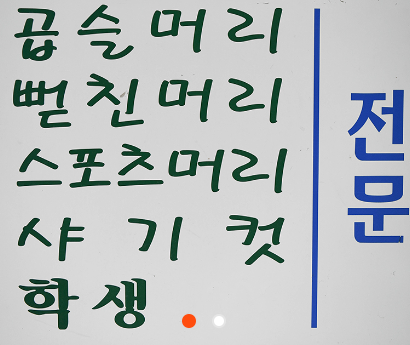 곱슬머리
뻗친머리
스포츠머리
샤기컷
학생
전문